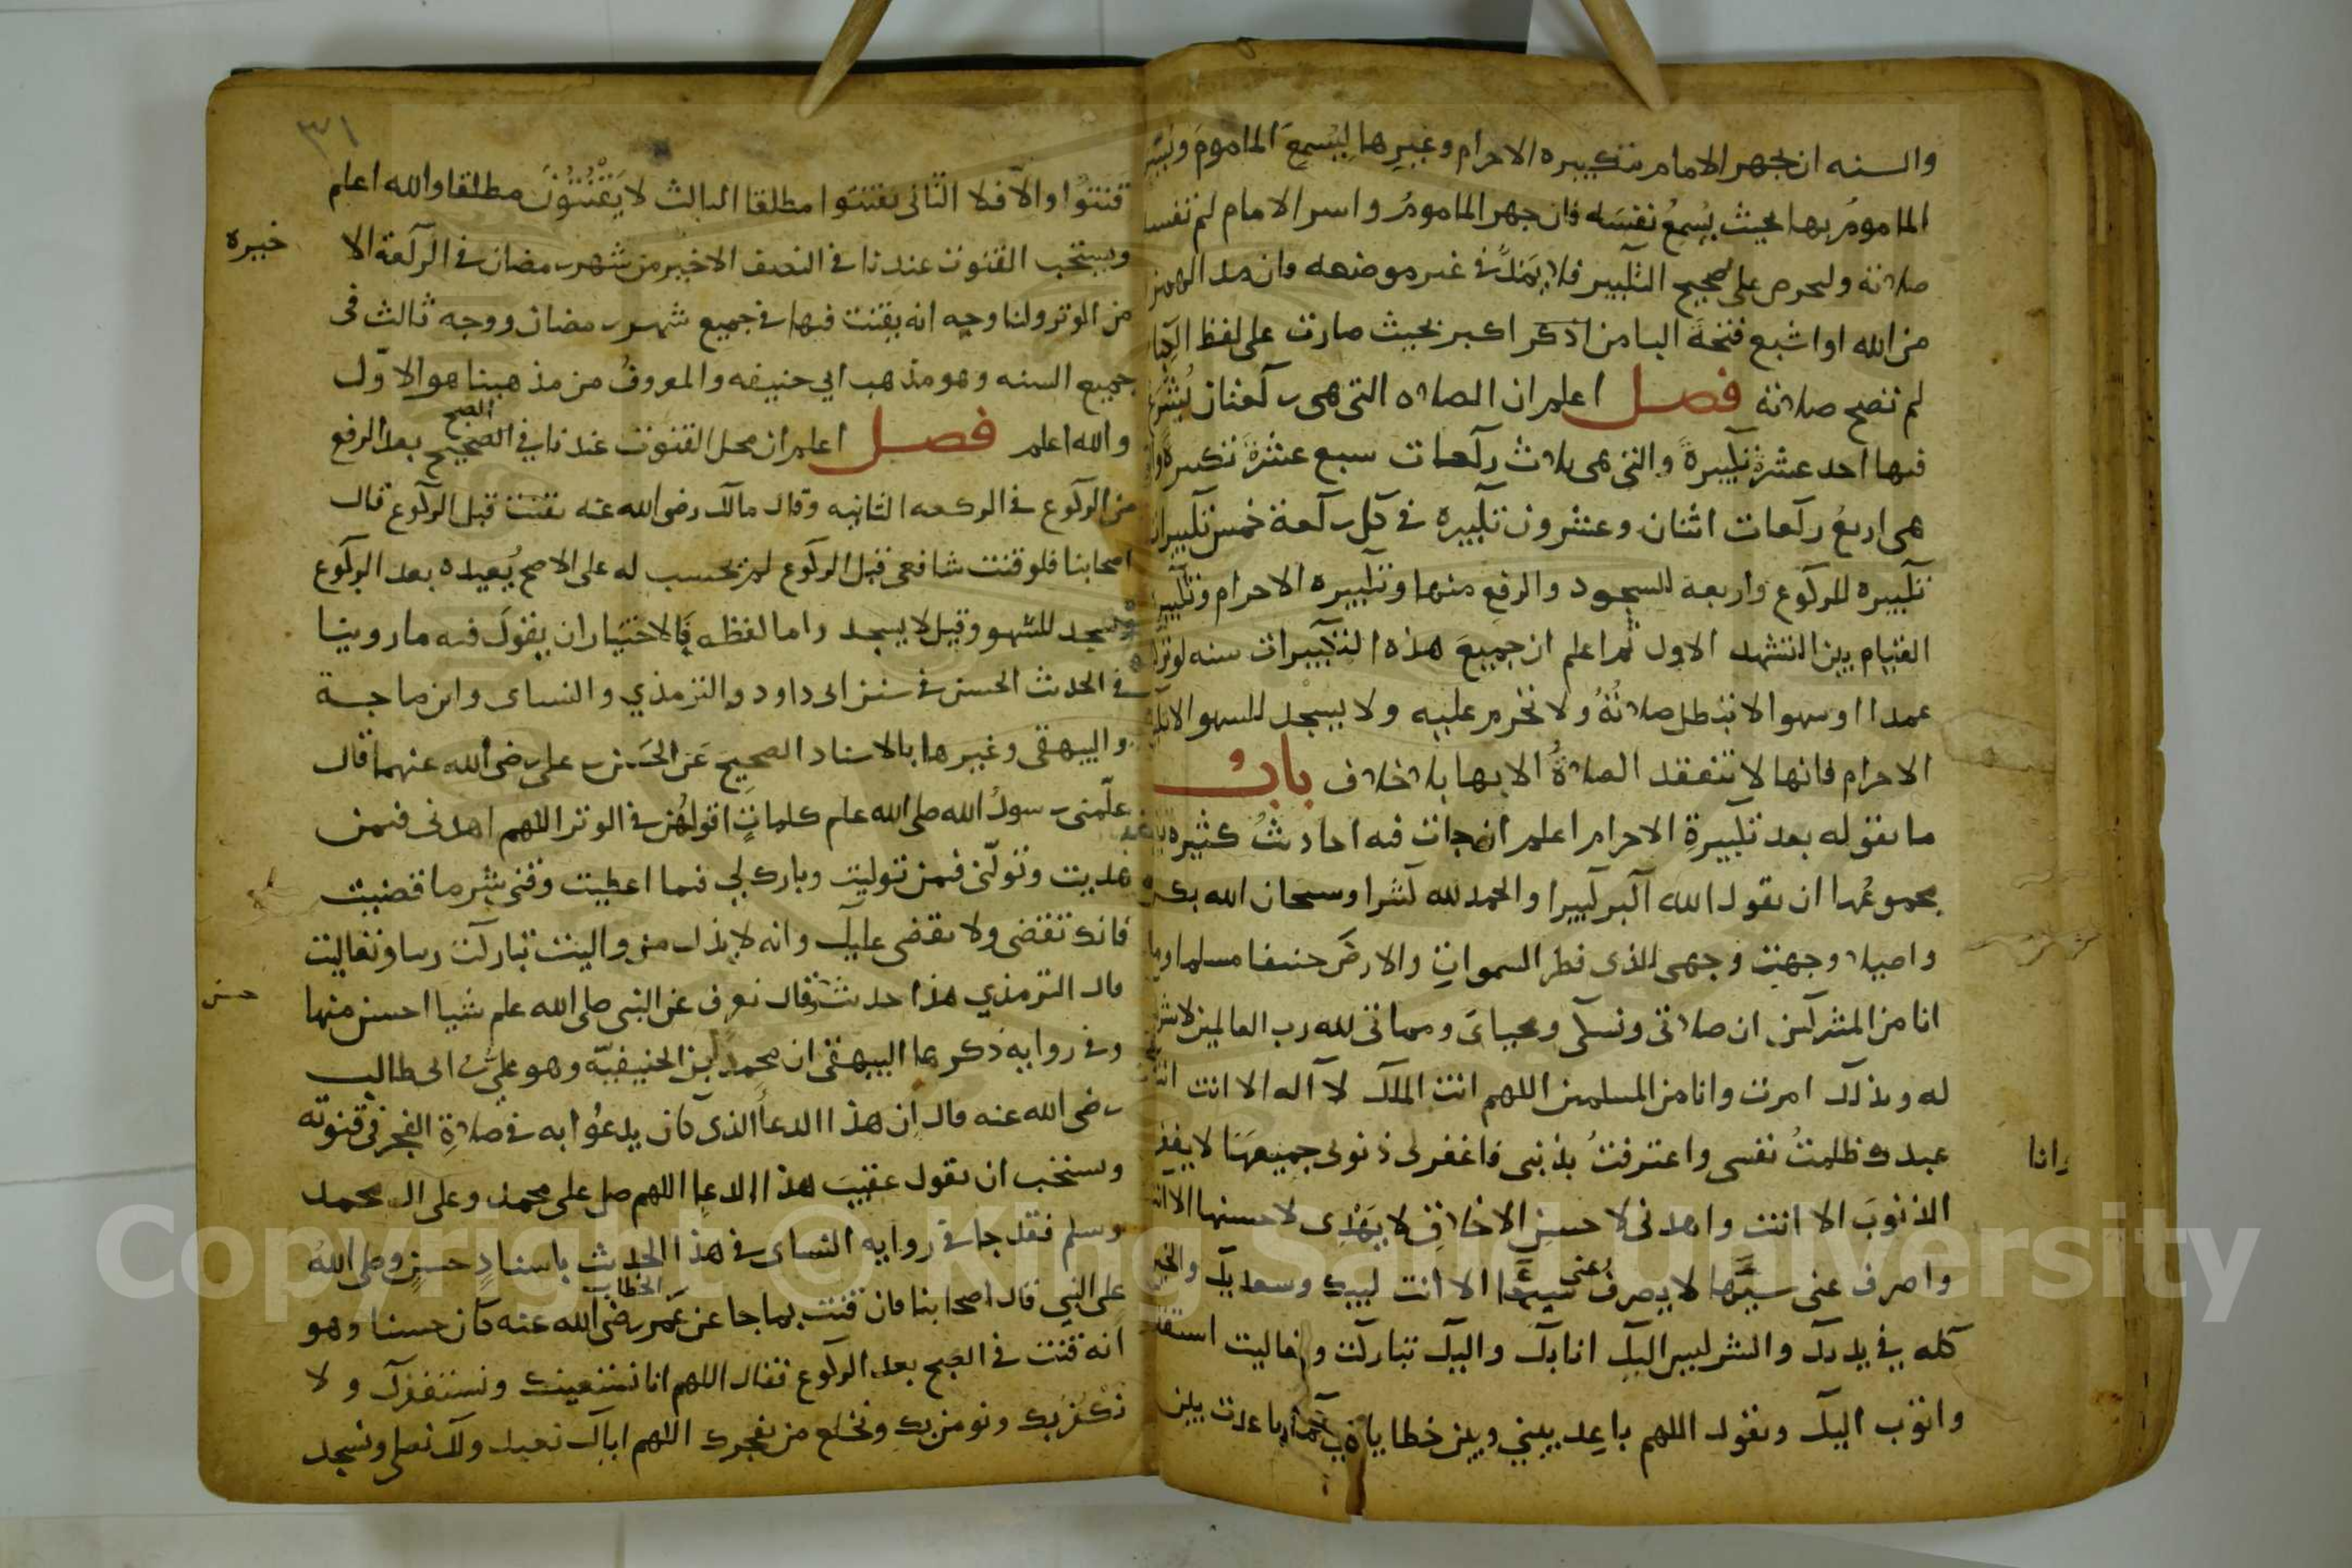 والسنه ان يجهر الامام بتكبيره الاحرام وغيرها ليُسمِعَ الماموم ويسر
المامومُ بها بحيث يُسمِعُ نفسَه فان جهر المامومُ واسر الامام لم تفسد
صلاته وليحرص على تصحيح التكبير فلا يَمُدُّ في غير موضعه فان مد الهمز
من الله او اشبع فتحةَ البا من اكبر بحيث صارت على لفظ اكبار
لم تصح صلاته فصل اعلم ان الصلاه التى هى ركعتان يُشرع
فيها احد عشرة تكبيرةً والتى هى ثلاث ركعات سبع عشرةَ تكبيرةً
هى اربعُ ركعات اثنان وعشرون تكبيره فى كل ركعة خمس تكبيرات
تكبيره للركوع واربعة للسجود والرفع منها وتكبيره الاحرام وتكبيرة
القيام من التشهد الاول ثم اعلم ان جميعَ هذه التكبيرات سنه لو ترك
عمدا او سهوا لا تبطل صلاتُهُ ولا تحرم عليه ولا يسجد للسهو الا تكبيرة
الاحرام فانها لا تنعقد الصلاةُ الا بها بلا خلاف بابُ
ما يقوله بعد تكبيرةِ الاحرام اعلم ان جات فيه احاديثُ كثيره
مجموعُها ان يقول الله اكبر كبيرا والحمد لله كثيرا وسبحان الله بكرة
واصيلا وجهت وجهى للذى فطر السمواتِ والارضَ حنيفا مسلما وما
انا من المشركين ان صلاتى ونسكى ومحياىَ ومماتى لله رب العالمين لا شريك
له وبذلك امرت وانا من المسلمين اللهم انت الملك لا اله الا انت
وانا
عبدك ظلمتُ نفسى واعترفتُ بذنبى فاغفر لى ذنوبى جميعها لا يغفر
الذنوبَ الا انت واهدنى لاحسنِ الاخلاقِ لا يَهْدِى لاحسنها الا انت
واصرف عنى سيّئَها لا يصرفُ عنى سيئَها الا انت لبيك وسعديك والخير
كله في يديك والشر ليس اليك انا بك واليك تباركت وتعاليت استغفرك
واتوب اليك ويقول اللهم باعِد بينى وبين خطاياى كما باعدت بين
٣١
قنتوُا والا فلا الثانى يقنتوا مطلقا الثالث لا يَقْنُتُونَ مطلقا والله اعلم
ويستحب القنوت عندنا فى النصف الاخير من شهر رمضان فى الركعة الا
خيره
من الوتر ولنا وجه انه يقنت فيها فى جميع شهر رمضان ووجه ثالث فى
جميع السنه وهو مذهب ابي حنيفه والمعروفُ من مذهبنا هو الاوّل
والله اعلم فصل اعلم ان محل القنوت عندنا في الصبح الصحيح بعد الرفع
من الركوع فى الركعه الثانيه وقال مالك رضى الله عنه يقنت قبل الركوع قال
اصحابنا فلو قنت شافعى قبل الركوع لم يحسب له على الاصح يُعيده بعد الركوع
ويسجد للسهو وقيل لا يسجد واما لفظه فالاختيار ان يقولَ فيه ما روينا
فى الحديث الحسن فى سنن ابى داود والترمذي والنساى وابن ماجة
والبيهقى وغيرها بالاسناد الصحيحِ عَن الحَسَن بن على رضى الله عنهما قال
علّمنى رسولُ الله صلى الله علم كلماتٍ اقولُهُن فى الوتر اللهم اهدنى فيمن
هديت وتولّنى فيمن توليت وبارك لي فيما اعطيت وقنى شر ما قضيت
فانك تقضى ولا يقضى عليك وانه لا يذل من واليت تباركت ربنا وتعاليت
قال الترمذي هذا حديث حسن وقال نعرف عن النبى صلى الله علم شيا احسن منها
وفى روايه ذكرها البيهقى ان محمد بن الحنيفيّه وهو على بن ابى طالب
رضى الله عنه قال ان هذا الدعاُ الذى كان يدعُوا به فى صلاةِ الفجر فى قنوته
وستحب ان يقول عقيبَ هذا الدعا اللهم صل على محمد وعلى ال محمد
وسلم فقد جا فى روايه النساى فى هذا الحديث باسنادٍ حسنٍ وصلى اللهُ
على النبي قال اصحابنا فان قنت بما جا عن عُمر الخطاب رضى الله عنه كان حسنا وهو
انه قنت فى الصبح بعد الركوع فقال اللهم انا نستعينك ونستغفرك ولا
نكفُرك ونومن بك ونخلع من يفجرك اللهم اياك نعبد ولك نصلى ونسجد